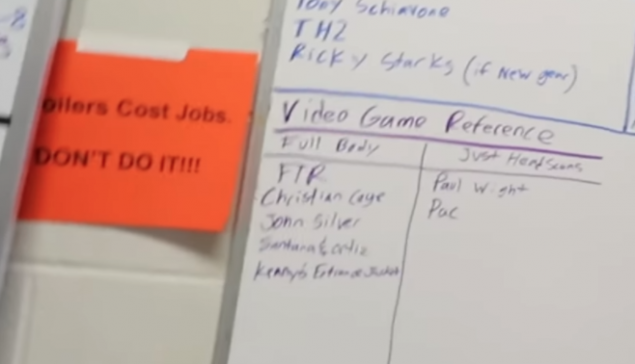 oilers Cost Jobs.
DON'T DO IT!!!
Tony Schiavone
TH2
Ricky Starks (if New gear)
Video Game Reference
Full Body
Just Headscans
FTR
Paul Wight
Christian Cage
Pac
John Silver
Santana & Ortiz
Kenny's Entrance Jacket